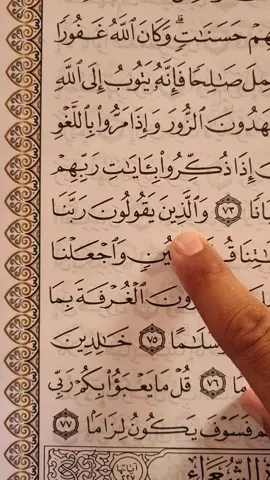 حَسَنَٰتٖۗ وَكَانَ ٱللَّهُ غَفُورٗا
صَٰلِحٗا فَإِنَّهُۥ يَتُوبُ إِلَى ٱللَّهِ
ٱلزُّورَ وَإِذَا مَرُّواْ بِٱللَّغۡوِ
إِذَا ذُكِّرُواْ بِـَٔايَٰتِ رَبِّهِمۡ
٧٣ وَٱلَّذِينَ يَقُولُونَ رَبَّنَا
وَٱجۡعَلۡنَا
ٱلۡغُرۡفَةَ بِمَا
٧٥ خَٰلِدِينَ
٧٦ قُلۡ مَا يَعۡبَؤُاْ بِكُمۡ رَبِّي
فَسَوۡفَ يَكُونُ لِزَامَۢا ٧٧
ٱلشُّعَرَاءِ